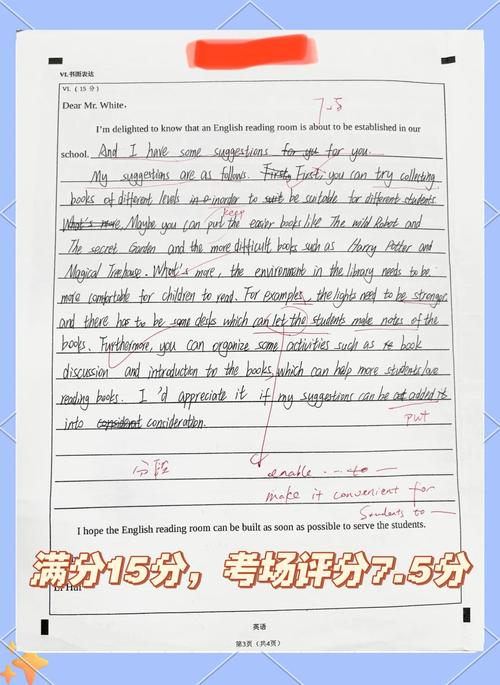 VI.书面表达
VI.（15 分）
7.5
Dear Mr. White,
I'm delighted to know that an English reading room is about to be established in our
school. And I have some suggestions for yu for you.
My suggestions are as follows. Firstly First, you can try collecting
books of different levels in o inorder to suit be suitable for different students.
keep
What's more, Maybe you can put the easier books like The wild Robot and
The secret Garden and the more difficult books such as Harry Potter and
Magical Treehouse. What's more, the environment in the library needs to be
more comfortable for children to read. For examples, the lights need to be stronger
and there has to be some desks which can let the students make notes of the
books. Furthermore, you can organize some activities such as book
discussion and introduction to the books, which can help more students love
reading books. I'd appreciate it if my suggestions can be added it
into consideration.
put
分段
enable ... to —
make it convenient for
students to —
I hope the English reading room can be built as soon as possible to serve the students.
满分15分，考场评分7.5分
Li Hua
英语
第3页（共4页）